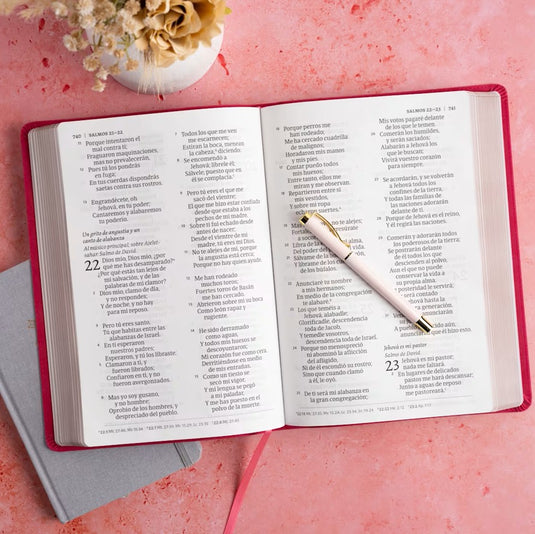 740 | SALMOS 21–22
11 Porque intentaron el
mal contra ti;
Fraguaron maquinaciones,
mas no prevalecerán,
12 Pues tú los pondrás
en fuga;
En tus cuerdas dispondrás
saetas contra sus rostros.
13 Engrandécete, oh
Jehová, en tu poder;
Cantaremos y alabaremos
tu poderío.
Un grito de angustia y un
canto de alabanza
Al músico principal; sobre Ajelet-
sahar. Salmo de David.
22 Dios mío, Dios mío, ¿por
qué me has desamparado?
¿Por qué estás tan lejos de
mi salvación, y de las
palabras de mi clamor?
2 Dios mío, clamo de día,
y no respondes;
Y de noche, y no hay
para mí reposo.
3 Pero tú eres santo,
Tú que habitas entre las
alabanzas de Israel.
4 En ti esperaron
nuestros padres;
Esperaron, y tú los libraste.
5 Clamaron a ti, y
fueron librados;
Confiaron en ti, y no
fueron avergonzados.
6 Mas yo soy gusano,
y no hombre;
Oprobio de los hombres, y
despreciado del pueblo.
7 Todos los que me ven
me escarnecen;
Estiran la boca, menean
la cabeza, diciendo:
8 Se encomendó a
Jehová; líbrele él;
Sálvele, puesto que en
él se complacía.
9 Pero tú eres el que me
sacó del vientre;
El que me hizo estar confiado
desde que estaba a los
pechos de mi madre.
10 Sobre ti fui echado desde
antes de nacer;
Desde el vientre de mi
madre, tú eres mi Dios.
11 No te alejes de mí, porque
la angustia está cerca;
Porque no hay quien ayude.
12 Me han rodeado
muchos toros;
Fuertes toros de Basán
me han cercado.
13 Abrieron sobre mí su boca
Como león rapaz y
rugiente.
14 He sido derramado
como aguas,
Y todos mis huesos se
descoyuntaron;
Mi corazón fue como cera,
Derritiéndose en medio
de mis entrañas.
15 Como un tiesto se
secó mi vigor,
Y mi lengua se pegó
a mi paladar,
Y me has puesto en el
polvo de la muerte.
SALMOS 22–23 | 741
16 Porque perros me
han rodeado;
Me ha cercado cuadrilla
de malignos;
Horadaron mis manos
y mis pies.
17 Contar puedo todos
mis huesos;
Entre tanto, ellos me
miran y me observan.
18 Repartieron entre sí
mis vestidos,
Y sobre mi ropa
no te alejes;
Sálvame de la
Y líbrame de los
de los búfalos.
22 Anunciaré tu nombre
a mis hermanos;
En medio de la congregación
te alabaré.
23 Los que teméis a
Jehová, alabadle;
Glorificadle, descendencia
toda de Jacob,
Y temedle vosotros,
descendencia toda de Israel.
24 Porque no menospreció
ni abominó la aflicción
del afligido,
Ni de él escondió su rostro;
Sino que cuando clamó
a él, le oyó.
25 De ti será mi alabanza en
la gran congregación;
Mis votos pagaré delante
de los que le temen.
26 Comerán los humildes,
y serán saciados;
Alabarán a Jehová los
que le buscan;
Vivirá vuestro corazón
para siempre.
27 Se acordarán, y se volverán
a Jehová todos los
confines de la tierra,
Y todas las familias de
las naciones adorarán
delante de ti.
28 Porque de Jehová es el reino,
Y él regirá las naciones.
29 Comerán y adorarán todos
los poderosos de la tierra;
Se postrarán delante
de él todos los que
descienden al polvo,
Aun el que no puede
conservar la vida a
su propia alma.
posteridad le servirá;
será contado
hasta la
generación.
anunciarán su
justicia;
él hizo esto.
Jehová es mi pastor
Salmo de David.
23 Jehová es mi pastor;
nada me faltará.
2 En lugares de delicados
pastos me hará descansar;
Junto a aguas de reposo
me pastoreará.